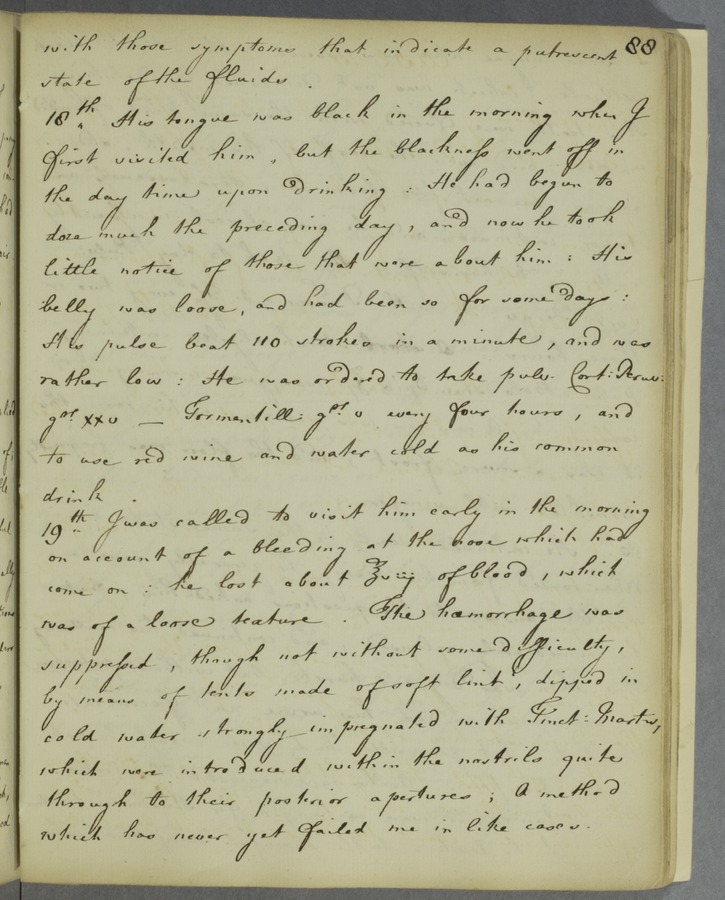 88
with those symptoms that indicate a putrescent
state of the fluids.
18th His tongue was black in the morning when I
first visited him, but the blackness went off in
the day time upon drinking: He had begun to
doze much the preceding day, and now he took
little notice of those that were about him: His
belly was loose, and had been so for some days:
His pulse beat 110 strokes in a minute, and was
rather low: He was ordered to take pulv. Cort: Peruv:
grs xxv — Tormentill: grs v every four hours, and
to use red wine and water cold as his common
drink.
19th I was called to visit him early in the morning
on account of a bleeding at the nose which had
come on: he lost about ℥viij of blood, which
was of a loose texture. The hæmorrhage was
suppressed, though not without some difficulty,
by means of tents made of soft lint, dipped in
cold water strongly impregnated with Tinct: Martis,
which were introduced within the nostrils quite
through to their posterior apertures; A method
which has never yet failed me in like cases.